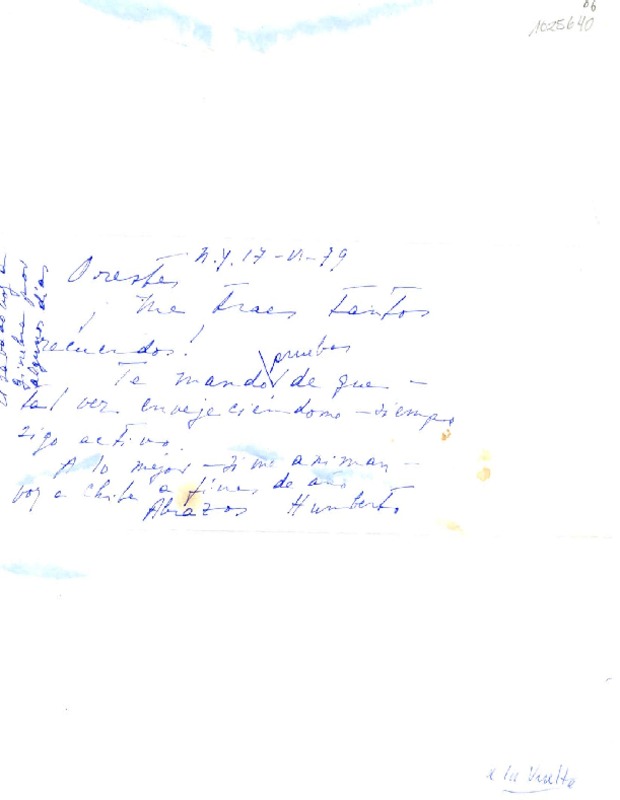 1025640
N.Y. 17-VI-79
Orestes
¡Me traes tantos
recuerdos!
Te mando pruebas de que -
tal vez envejeciéndome - siempre
sigo activo.
A lo mejor - si me animan -
voy a Chile a fines de año
Abrazos Humberto
algunos días
a la vuelta